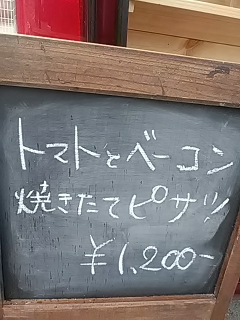 トマトとベーコン
焼きたてピザッ
¥1,200-